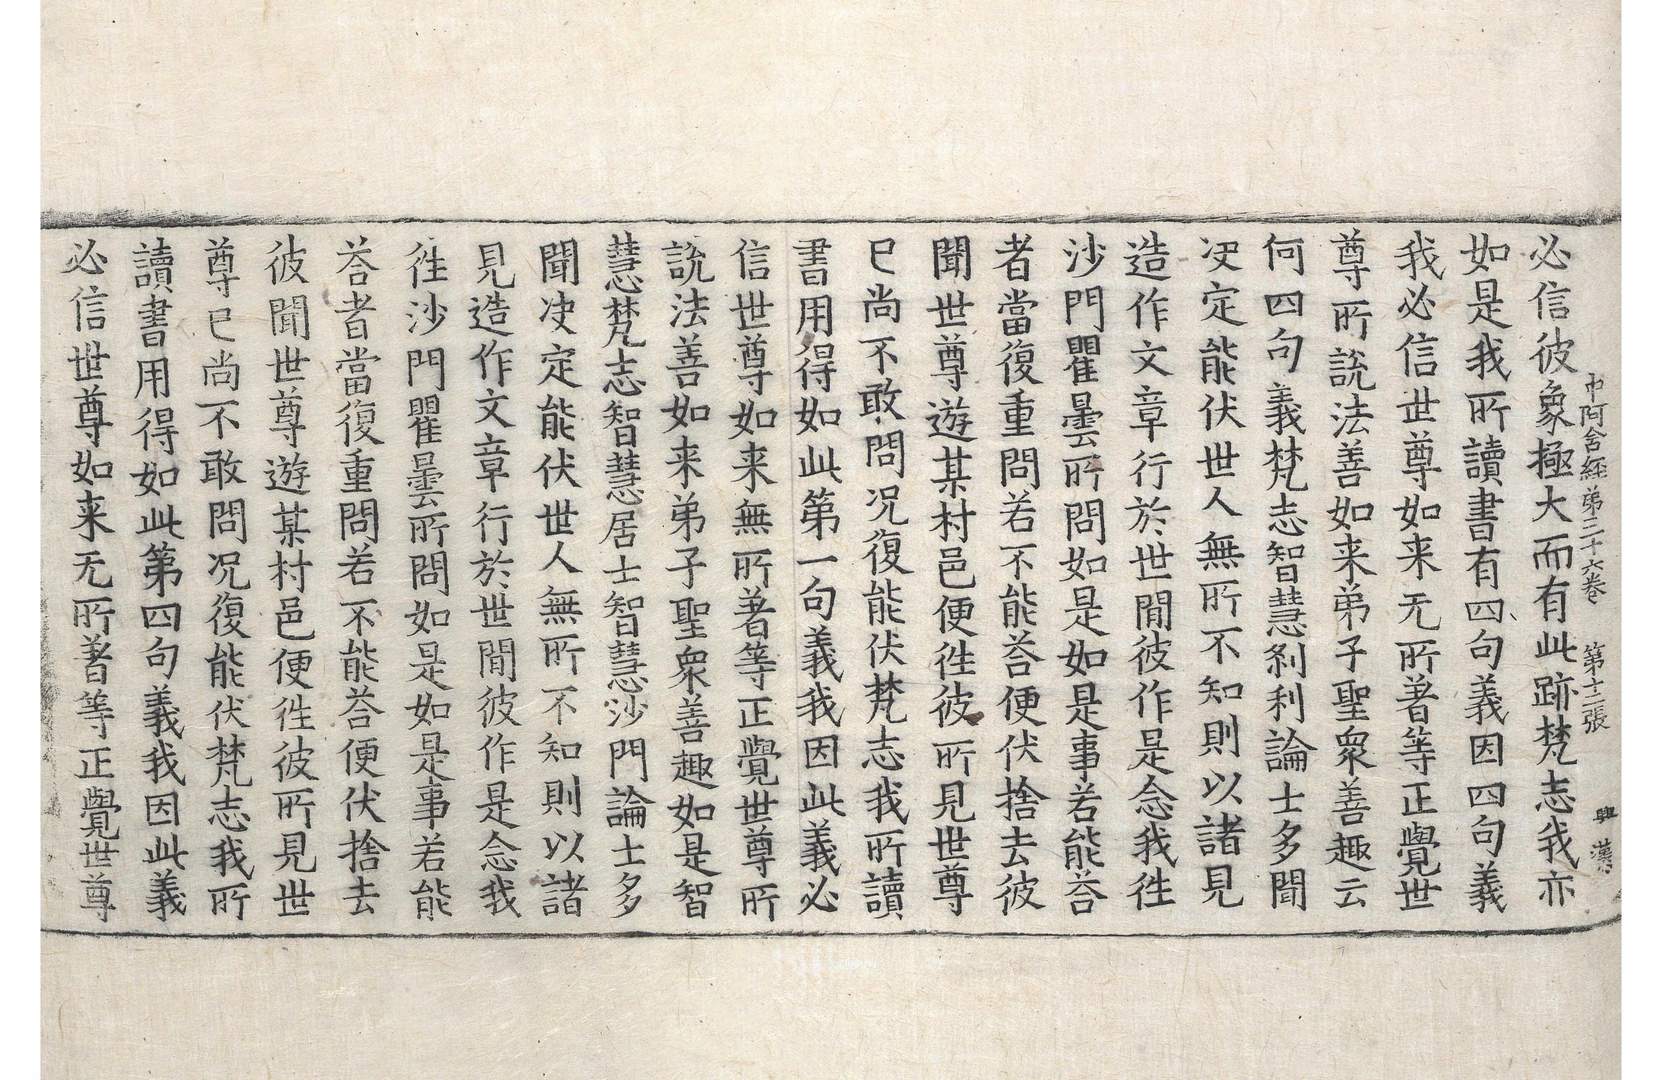 中阿含經第三十六卷 第十二張 興 漢
必信彼象極大而有此跡梵志我亦
如是我所讀書有四句義因四句義
我必信世尊如来无所著等正覺世
尊所說法善如来弟子聖衆善趣云
何四句義梵志智慧刹利論士多聞
决定能伏世人無所不知則以諸見
造作文章行於世閒彼作是念我往
沙門瞿曇所問如是如是事若能荅
者當復重問若不能荅便伏捨去彼
聞世尊遊某村邑便往彼所見世尊
已尚不敢問况復能伏梵志我所讀
書用得如此第一句義我因此義必
信世尊如来無所著等正覺世尊所
說法善如来弟子聖衆善趣如是智
慧梵志智慧居士智慧沙門論士多
聞决定能伏世人無所不知則以諸
見造作文章行於世閒彼作是念我
往沙門瞿曇所問如是如是事若能
荅者當復重問若不能荅便伏捨去
彼聞世尊遊某村邑便往彼所見世
尊已尚不敢問况復能伏梵志我所
讀書用得如此第四句義我因此義
必信世尊如来无所著等正覺世尊